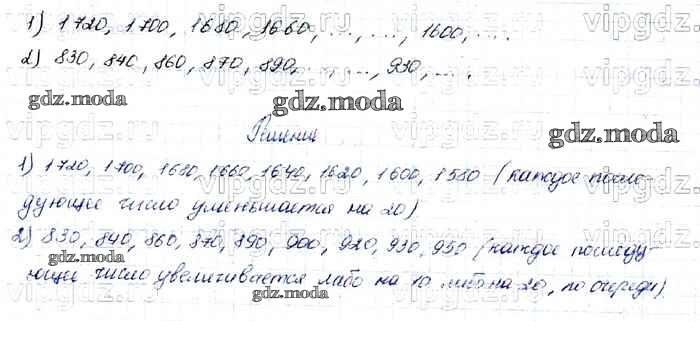 1) 1720, 1700, 1680, 1660, ..., ..., 1600, ... .
2) 830, 840, 860, 870, 890, ..., ..., 930, ... .
gdz.moda
gdz.moda
Решение
gdz.moda
1) 1720, 1700, 1680, 1660, 1640, 1620, 1600, 1580 (каждое после-
дующее число уменьшается на 20)
2) 830, 840, 860, 870, 890, 900, 920, 930, 950 (каждое последу-
gdz.moda
gdz.moda
ющее число увеличивается либо на 10 либо на 20, по очереди).
gdz.moda